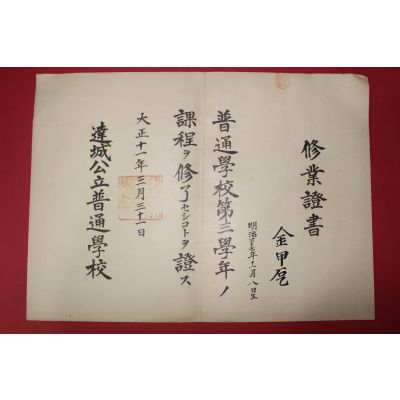 修業證書
金甲
明治三十七年十二月八日生
普通學校第三學年ノ
課程ヲ修了セシコトヲ證ス
大正十一年三月三十一日
達城公立普通學校